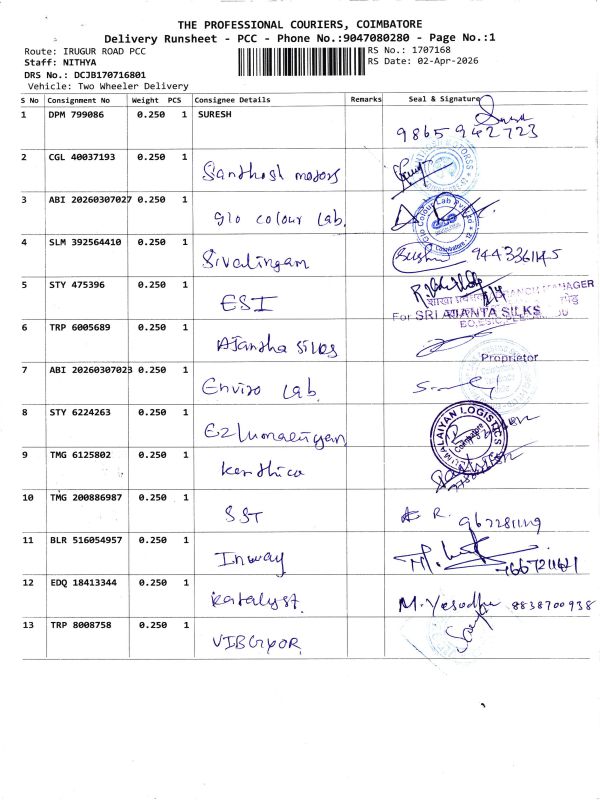 THE PROFESSIONAL COURIERS, COIMBATORE
Delivery Runsheet - PCC - Phone No.:9047080280 - Page No.:1
Route: IRUGUR ROAD PCC
RS No.: 1707168
Staff: NITHYA
RS Date: 02-Apr-2026
DRS No.: DCJB170716801
Vehicle: Two Wheeler Delivery
S No Consignment No Weight PCS Consignee Details Remarks Seal & Signature
1 DPM 799086 0.250 1 SURESH Suresh
9865942723
2 CGL 40037193 0.250 1
Santhosh motors
3 ABI 20260307027 0.250 1
glo colour Lab.
Glo Colour Lab
Coimbatore
4 SLM 392564410 0.250 1
Sivalingam
5 STY 475396 0.250 1
ESI
BRANCH MANAGER
6 TRP 6005689 0.250 1
For SRI AJANTA SILKS
Ajantha silks
Proprietor
7 ABI 20260307023 0.250 1
Enviro Lab.
8 STY 6224263 0.250 1
Ezhumalaiyan
EZHUMALAIYAN LOGISTICS
Coimbatore
9 TMG 6125802 0.250 1
10 TMG 200886987 0.250 1
SST
11 BLR 516054957 0.250 1
Inway
12 EDQ 18413344 0.250 1
Katalyst.
M. Yesodha 8838700938
13 TRP 8008758 0.250 1
VIBGYOR